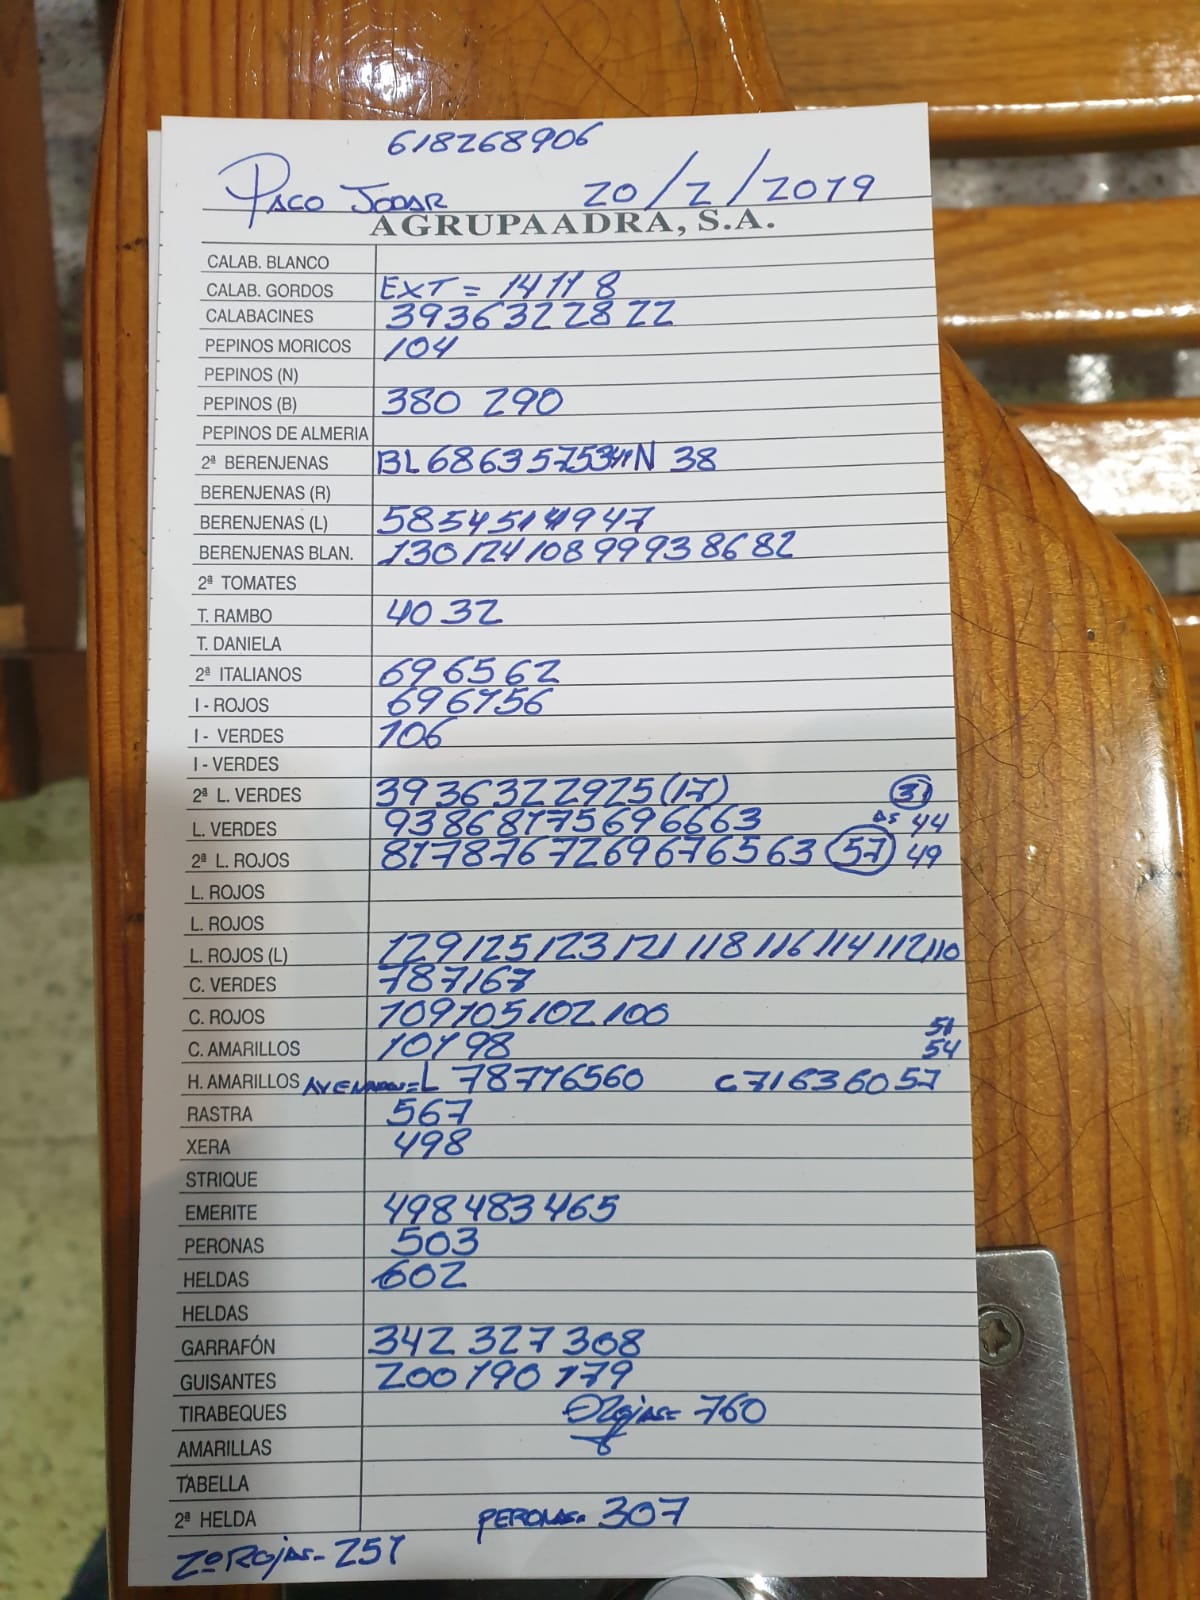 618268906
Paco Jodar 20/2/2019
AGRUPAADRA, S.A.
CALAB. BLANCO
CALAB. GORDOS EXT = 14 11 8
CALABACINES 39 36 32 28 22
PEPINOS MORICOS 104
PEPINOS (N)
PEPINOS (B) 380 290
PEPINOS DE ALMERIA
2ª BERENJENAS BL 68 63 57 53 N 38
BERENJENAS (R)
BERENJENAS (L) 58 54 51 49 47
BERENJENAS BLAN. 130 124 108 99 93 86 82
2ª TOMATES
T. RAMBO 40 32
T. DANIELA
2ª ITALIANOS 69 65 62
I - ROJOS 69 67 56
I - VERDES 106
I - VERDES
2ª L. VERDES 39 36 32 29 25 (17) 31
L. VERDES 93 86 81 75 69 66 63 AS 44
2ª L. ROJOS 81 78 76 72 69 67 65 63 57 49
L. ROJOS
L. ROJOS
L. ROJOS (L) 129 125 123 121 118 116 114 112 110
C. VERDES 78 71 67
C. ROJOS 109 105 102 100
C. AMARILLOS 101 98 51 54
H. AMARILLOS L 78 71 65 60 C 71 63 60 57
RASTRA 567
XERA 498
STRIQUE
EMERITE 498 483 465
PERONAS 503
HELDAS 602
HELDAS
GARRAFÓN 342 327 308
GUISANTES 200 190 179
TIRABEQUES Rojas = 760
AMARILLAS
TABELLA
2ª HELDA PERONAS = 307
2ª Rojas - 251